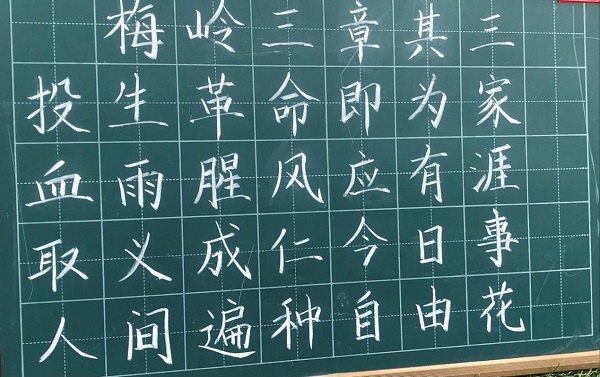 梅岭三章其三
投生革命即为家
血雨腥风应有涯
取义成仁今日事
人间遍种自由花